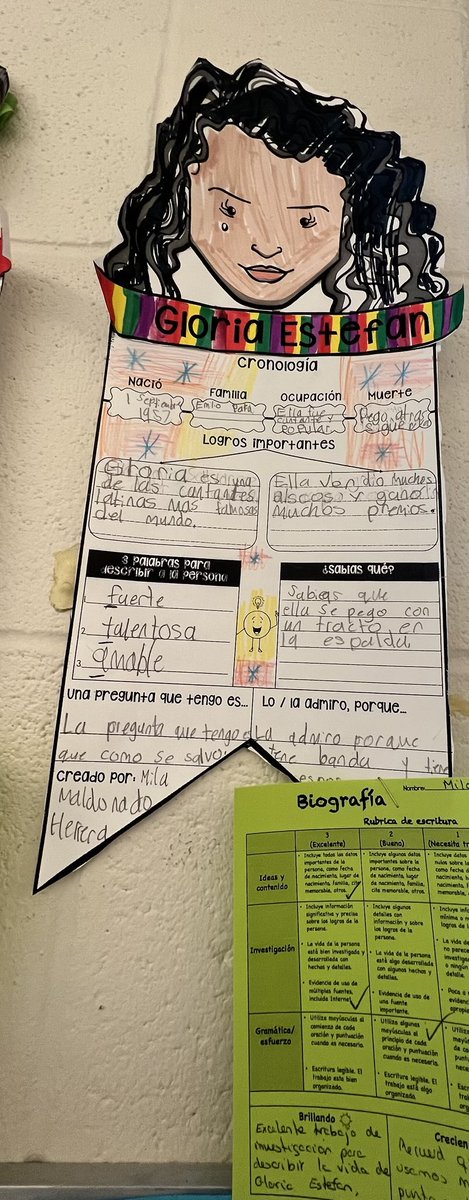 Gloria Estefan
Cronología
Nació Familia Ocupación Muerte
1 Septiembre
1957
Emilio Papa
Ella fue
cantante y
popular
Logros importantes
Gloria es una
de las cantantes
latinas mas famosas
del mundo.
Ella ven dio muches
discos y ganó
muchos premios.
3 palabras para
describir a la persona
1. fuerte
2. talentosa
3. amable
¿Sabías qué?
Sabias que
ella se pego con
un tracto en
la espalda
Una pregunta que tengo es...
La pregunta que tengo
que como se salvo
Lo / la admiro, porque...
La admiro porque
tene banda y tiene
Creado por: Mila
Maldonado
Herrera
Biografía
Nombre: Mila
Rubrica de escritura
3
(Excelente)
2
(Bueno)
1
(Necesita
Ideas y
contenido
• Incluye todos los datos
importantes de la
persona, como fecha
de nacimiento, lugar de
nacimiento, familia, cita
memorable, otros.
• Incluye algunos datos
importantes sobre la
persona, como fecha
de nacimiento, lugar
nacimiento, familia,
cita memorable, otros.
Investigación
• Incluye información
significativa y precisa
sobre los logros de la
persona.
• La vida de la persona
está bien investigada y
desarrollada con
hechos y detalles.
• Evidencia de uso de
múltiples fuentes,
incluida Internet.
• Incluye algunos
detalles con
información y sobre
los logros de la
persona.
• La vida de la persona
está algo desarrollada
con algunos hechos y
detalles.
• Evidencia de uso de
una fuente
importante.
Gramática/
esfuerzo
• Utiliza mayúsculas al
comienzo de cada
oración y puntuación
cuando es necesario.
• Escritura legible. El
trabajo esta bien
organizado.
• Utiliza algunas
mayúsculas al
principio de cada
oración y puntuación
cuando es necesario.
• Escritura legible. El
trabajo está algo
organizado.
Brillando
Excelente trabajo de
investigación para
describir la vida de
Gloria Estefan.
usamos